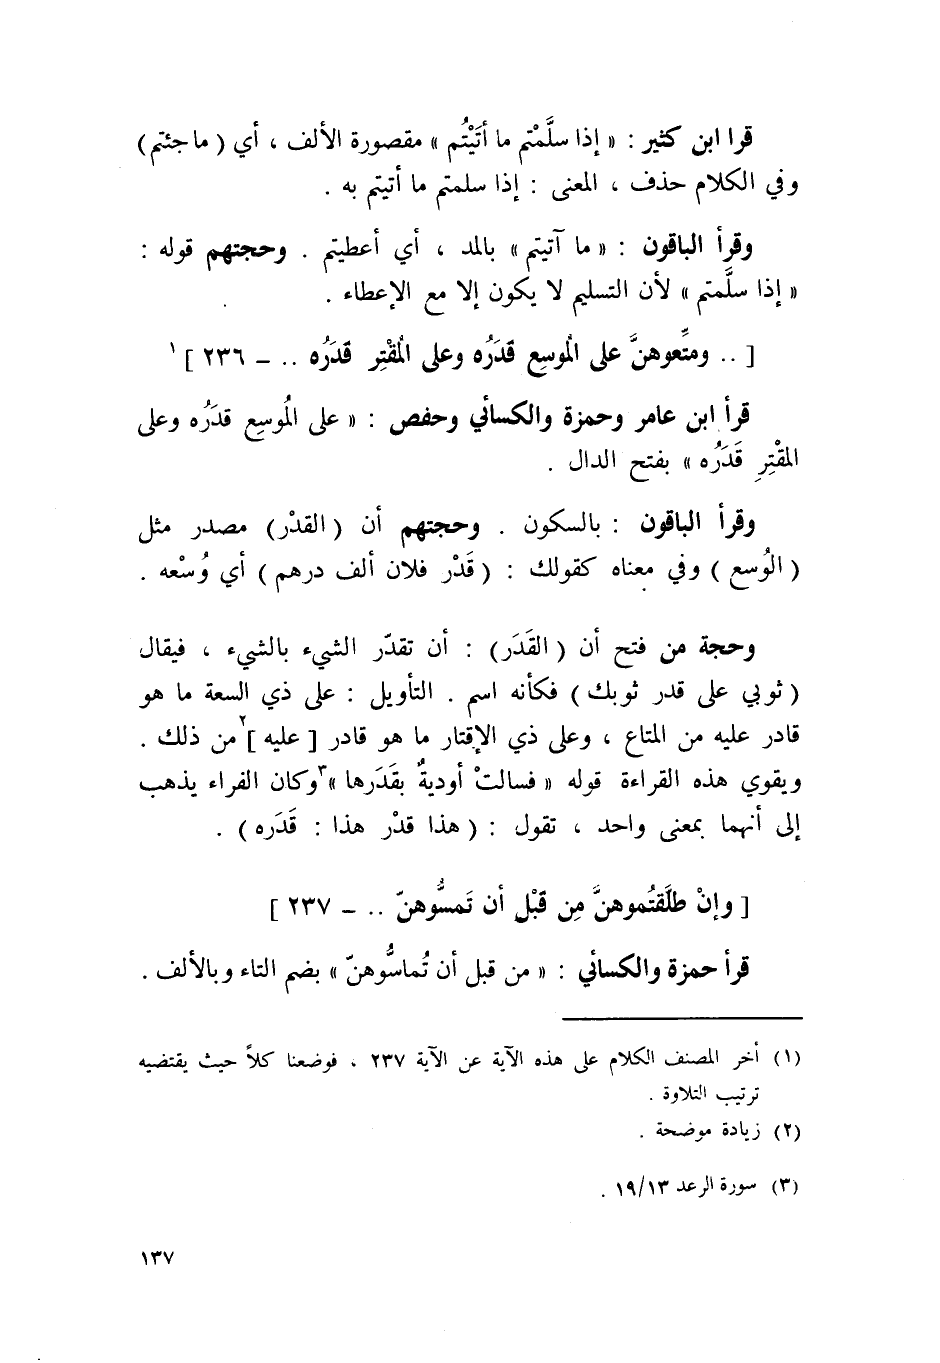 قرا ابن كثير : « إذا سلَّمْتم ما أتَيْتُم » مقصورة الألف ، أي ( ما جئتم)
وفي الكلام حذف ، المعنى : إذا سلمتم ما أتيتم به .
وقرأ الباقون : « ما آتيتم » بالمد ، أي أعطيتم . وحجتهم قوله :
« إذا سلَّمتم » لأن التسليم لا يكون إلا مع الإعطاء .
[ .. ومتِّعوهنَّ على الُموسِع قدَرُه وعلى الُمقْتِر قدَرُه .. – ٢٣٦ ]١
قرأ ابن عامر وحمزة والكسائي وحفص : « على الُموسِع قدَرُه وعلى
المقْتِرِ قَدَرُه » بفتح الدال .
وقرأ الباقون : بالسكون . وحجتهم أن (القدْر) مصدر مثل
( الوُسع ) وفي معناه كقولك : ( قَدْر فلان ألف درهم ) أي وُسْعه .
وحجة من فتح أن ( القَدَر) : أن تقدّر الشيء بالشيء ، فيقال
( ثوبي على قدر ثوبك ) فكأنه اسم . التأويل : على ذي السعة ما هو
قادر عليه من المتاع ، وعلى ذي الإقتار ما هو قادر [ عليه ]٢ من ذلك .
ويقوي هذه القراءة قوله « فسالتْ أوديةٌ بقَدَرها »٣ وكان الفراء يذهب
إلى أنهما بمعنى واحد ، تقول : ( هذا قدْر هذا : قَدَره ) .
[ وإنْ طلَّقتُموهنَّ مِن قبْلِ أن تَمسُّوهنّ .. – ٢٣٧ ]
قرأ حمزة والكسائي : « من قبل أن تُماسُّوهنّ » بضم التاء وبالألف .
(١) أخر المصنف الكلام على هذه الآية عن الآية ٢٣٧ ، فوضعنا كلاً حيث يقتضيه
ترتيب التلاوة .
(٢) زيادة موضحة .
(٣) سورة الرعد ١٩/١٣ .
١٣٧